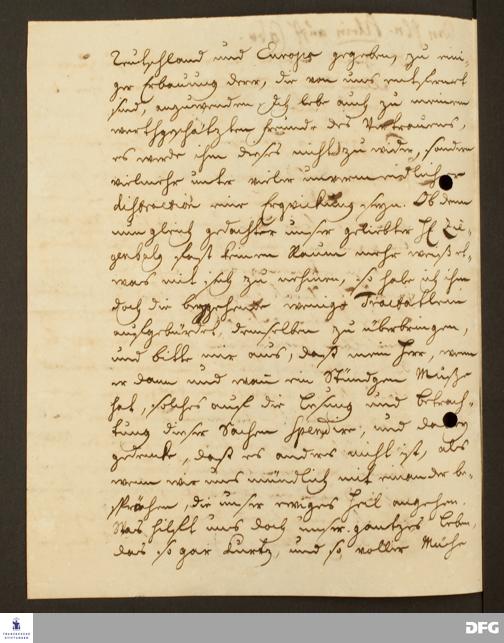 Teutschland und Europa gegeben, zu eini-
ger Erbauung derer, die von uns entfernet
sind, anzuwenden. Ich lebe auch zu meinem
werthgeschätzten Freunde des Vertrauens,
es werde ihm dieses nicht zu wider, sondern
vielmehr unter vieler unvermeidlicher
distraction eine Erquickung seyn. Ob dem
nun gleich gedachter unser geliebter H.
fast keinen Raum mehr weiß et-
was mit sich zu nehmen, so habe ich ihm
doch die beygehende wenige Tractätlein
aufgebürdet, demselben zu überbringen,
und bitte mir aus, daß mein Herr, wenn
er dann und wann ein Stündgen Muße
hat, solches auf die Lesung und Betrach-
tung dieser Sachen spendire, und dabey
gedencke, daß es anders nicht ist, als
wenn wir uns mündlich mit einander be-
sprächen, die unser ewiges Heil angehen.
Was hilfft uns doch unser gantzes Leben,
das so gar kurtz, und so voller Mühe
FRANCKESCHE STIFTUNGEN
DFG